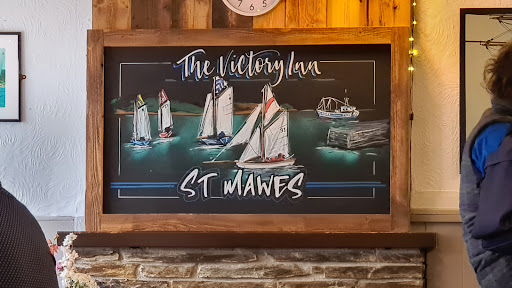 The Victory Inn
ST MAWES